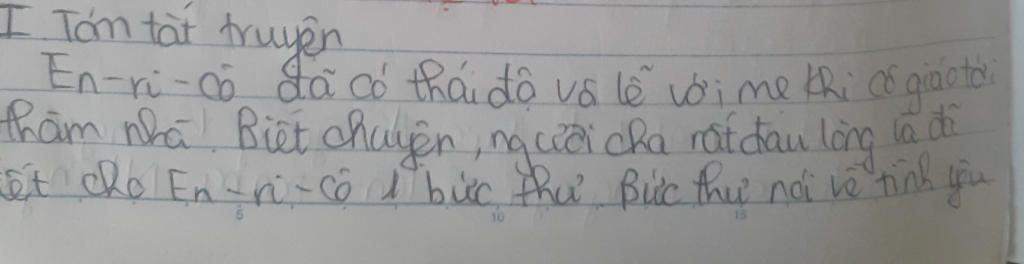 I Tóm tắt truyện
En-ri-cô đã có thái độ vô lễ với mẹ khi cô giáo tới
thăm nhà. Biết chuyện, người cha rất đau lòng và đã
iết cho En-ri-cô 1 bức thư. Bức thư nói về tình yêu
5 10 15